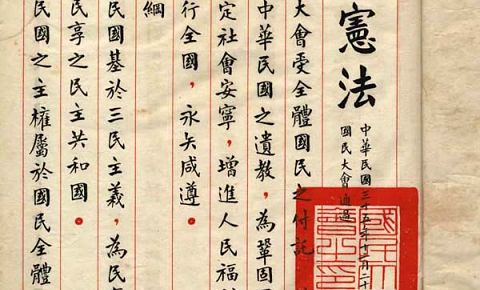 憲法
中華民國三十五年十二月二十
國民大會通過
大會受全體國民之付託
中華民國之遺教，為鞏固
定社會安寧，增進人民福
行全國，永矢咸遵。
綱
民國基於三民主義，為民
民享之民主共和國。
民國之主權屬於國民全體
國民大
會之印